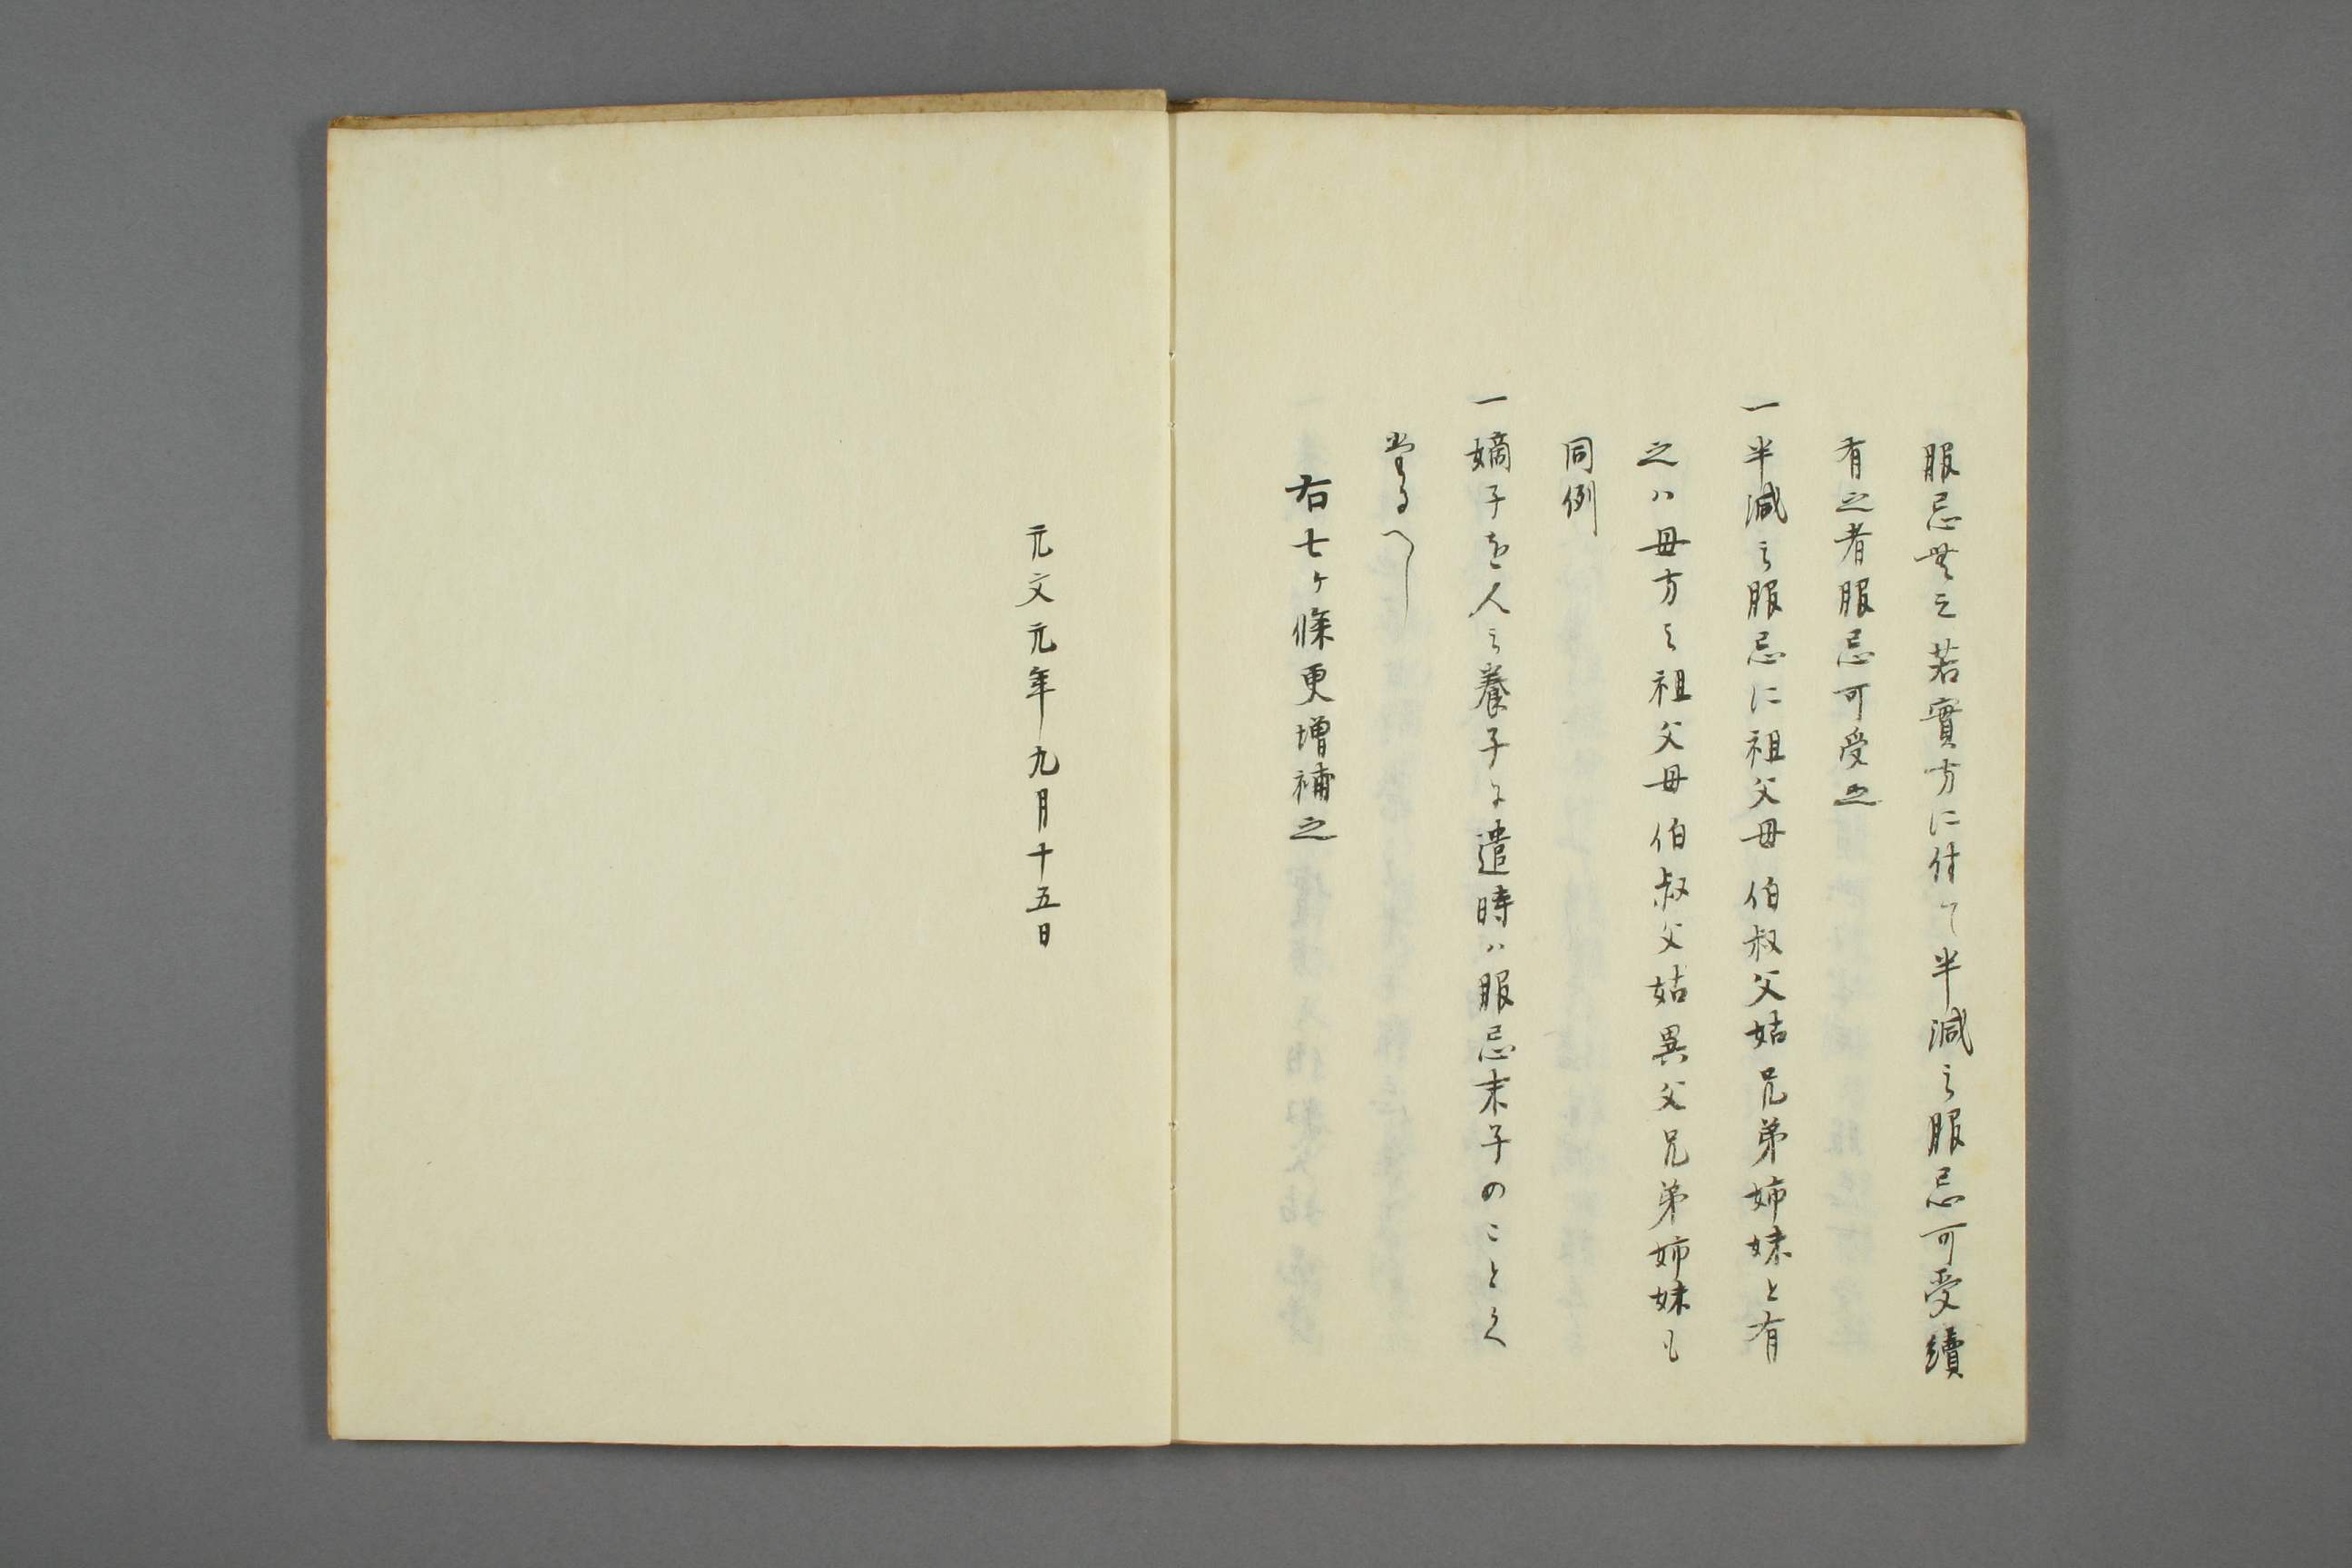 服忌無之若實方に付て半減之服忌可受續
有之者服忌可受之
一半減之服忌に祖父母伯叔父姑兄弟姉妹と有
之ハ母方之祖父母伯叔父姑異父兄弟姉妹も
同例
一嫡子を人之養子に遣時ハ服忌末子のことく
掌るへし
右七ヶ條更増補之
元文元年九月十五日